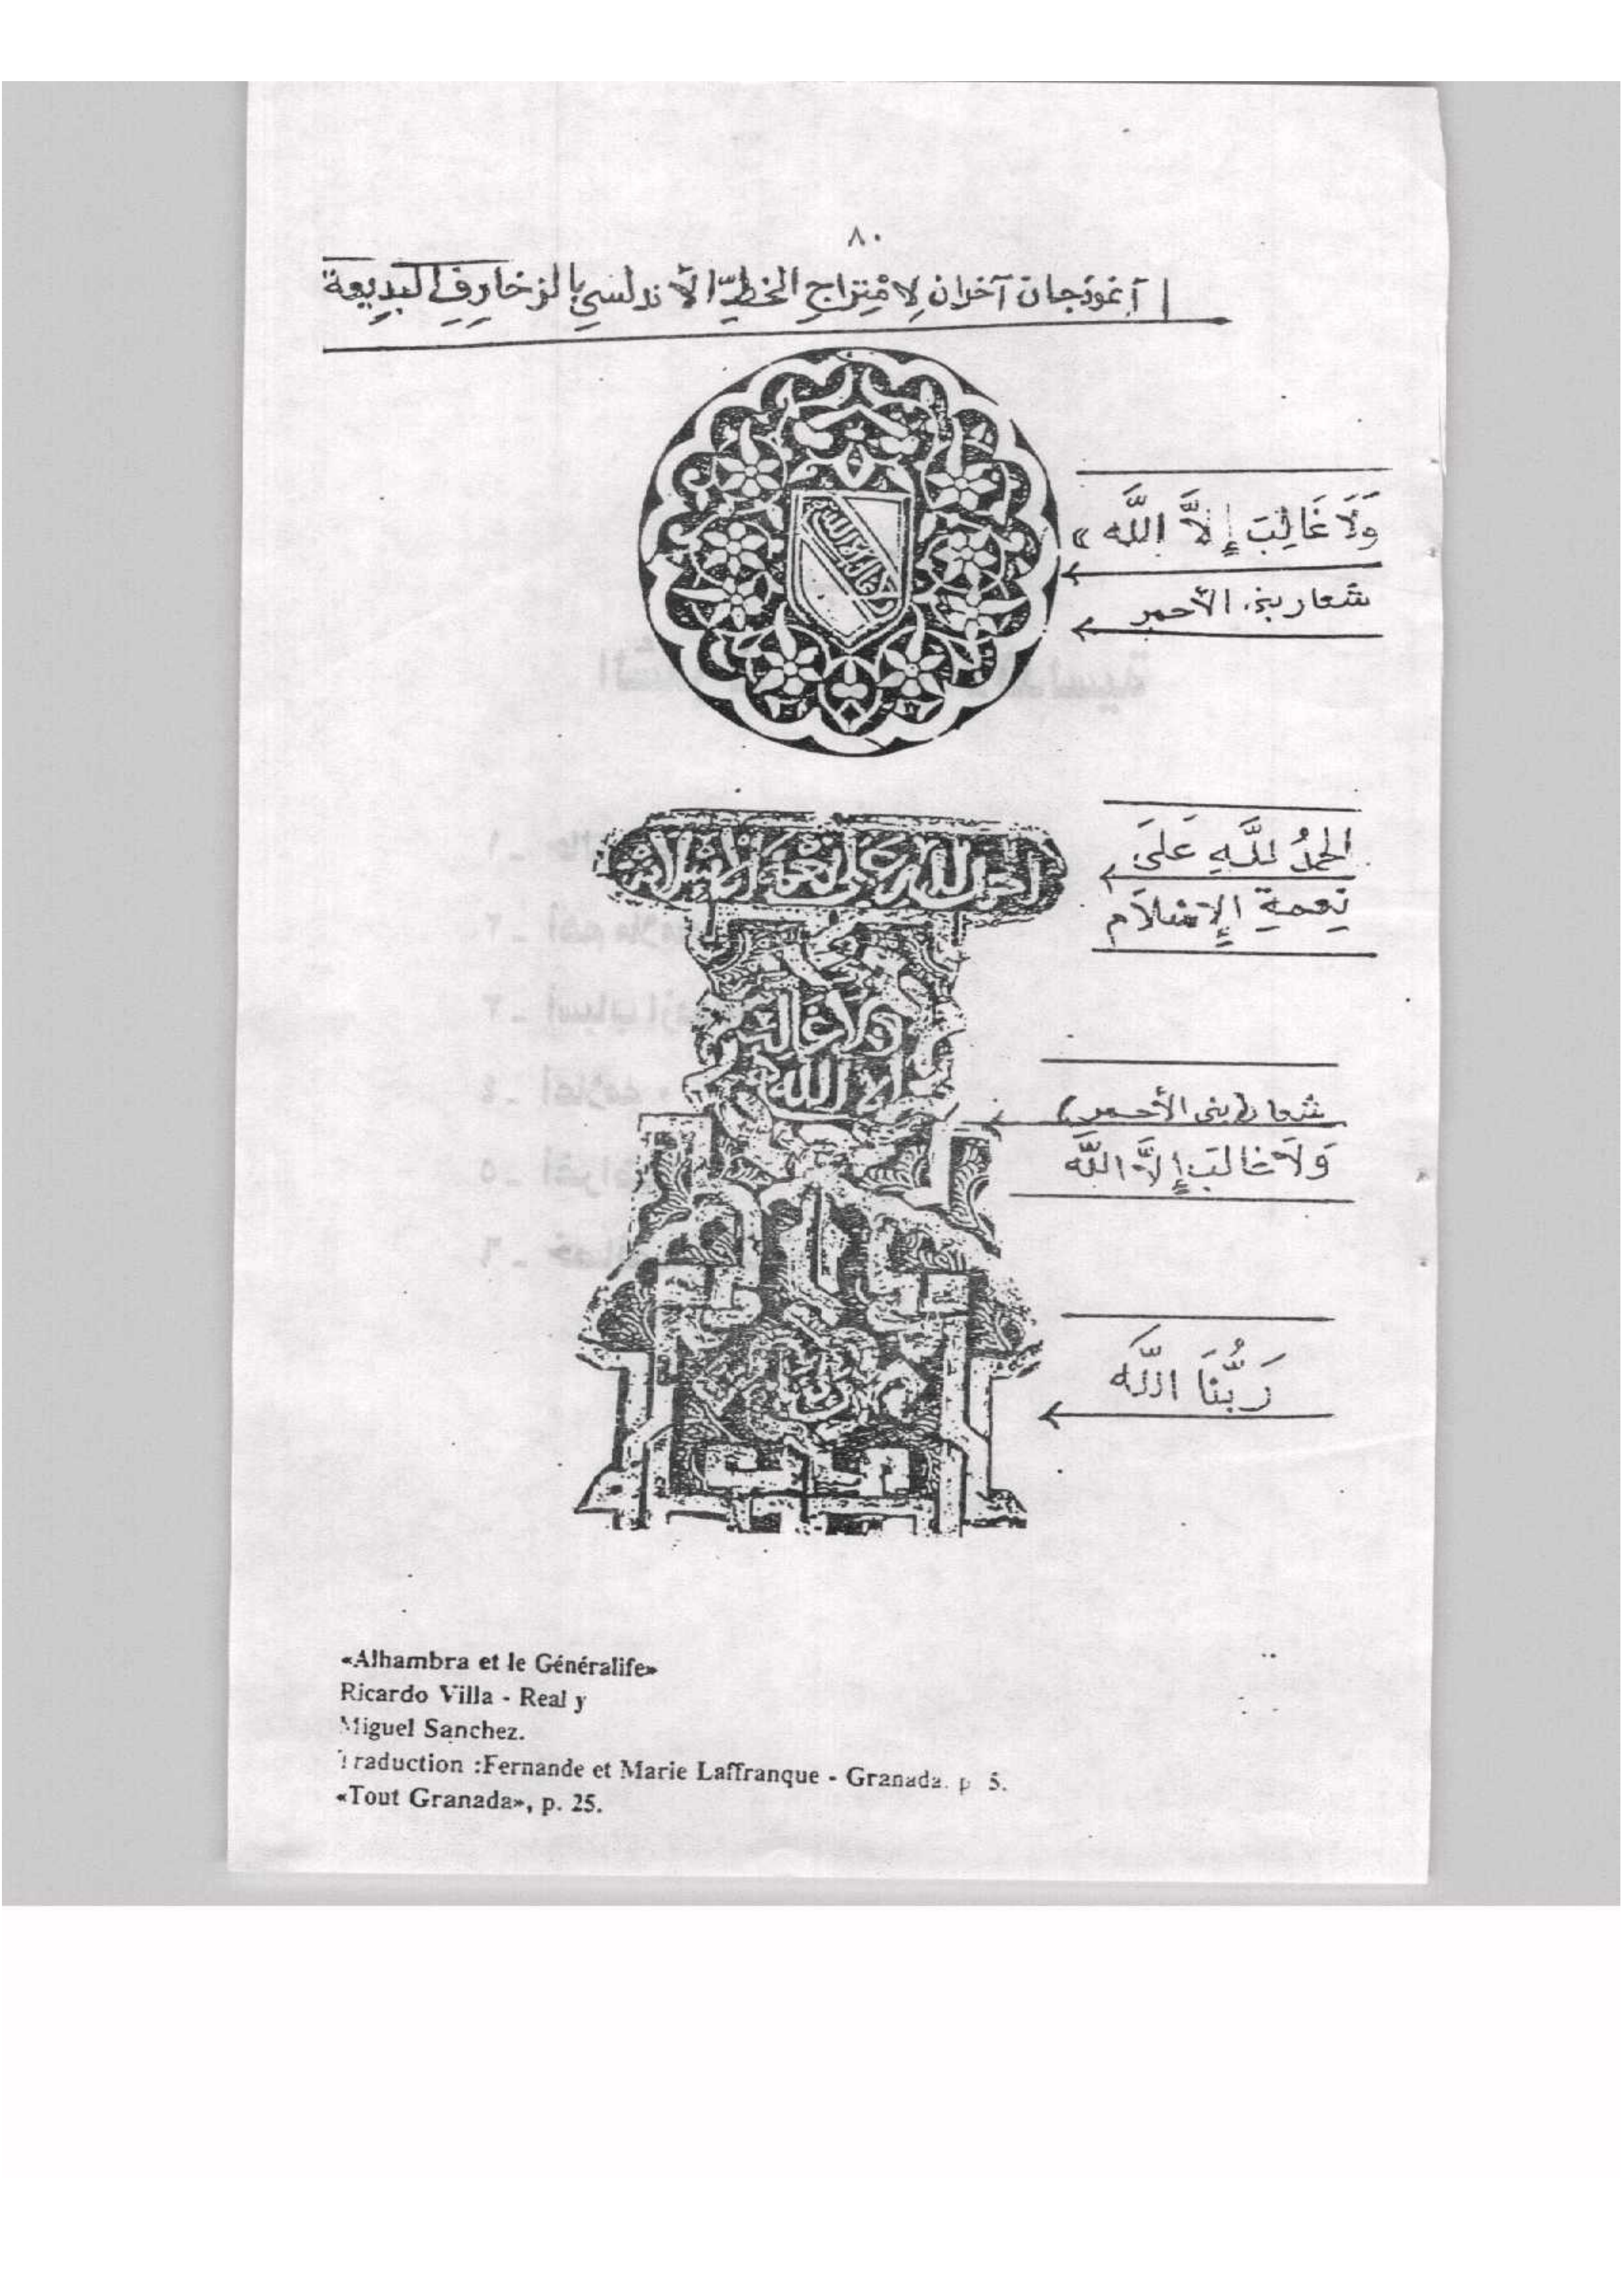 ٨٠
أنموذجان آخران لِامْتِزاجِ الخطِّ الأندلسيِ بالزخارِفِ البدِيعة
وَلَا غَالِبَ إِلاَّ اللَّه »
شعار بني الأحمر
الحمدُ للَّهِ عَلىَ
نِعمةِ الإِسْلاَم
ولا غالب
إلا الله
شعار (بني الأحمر)
وَلاَ غالبَ إِلاَّ اللَّه
رَبُّنَا اللَّه
«Alhambra et le Généralife»
Ricardo Villa - Real y
Miguel Sanchez.
Traduction :Fernande et Marie Laffranque - Granada. p 5.
«Tout Granada», p. 25.